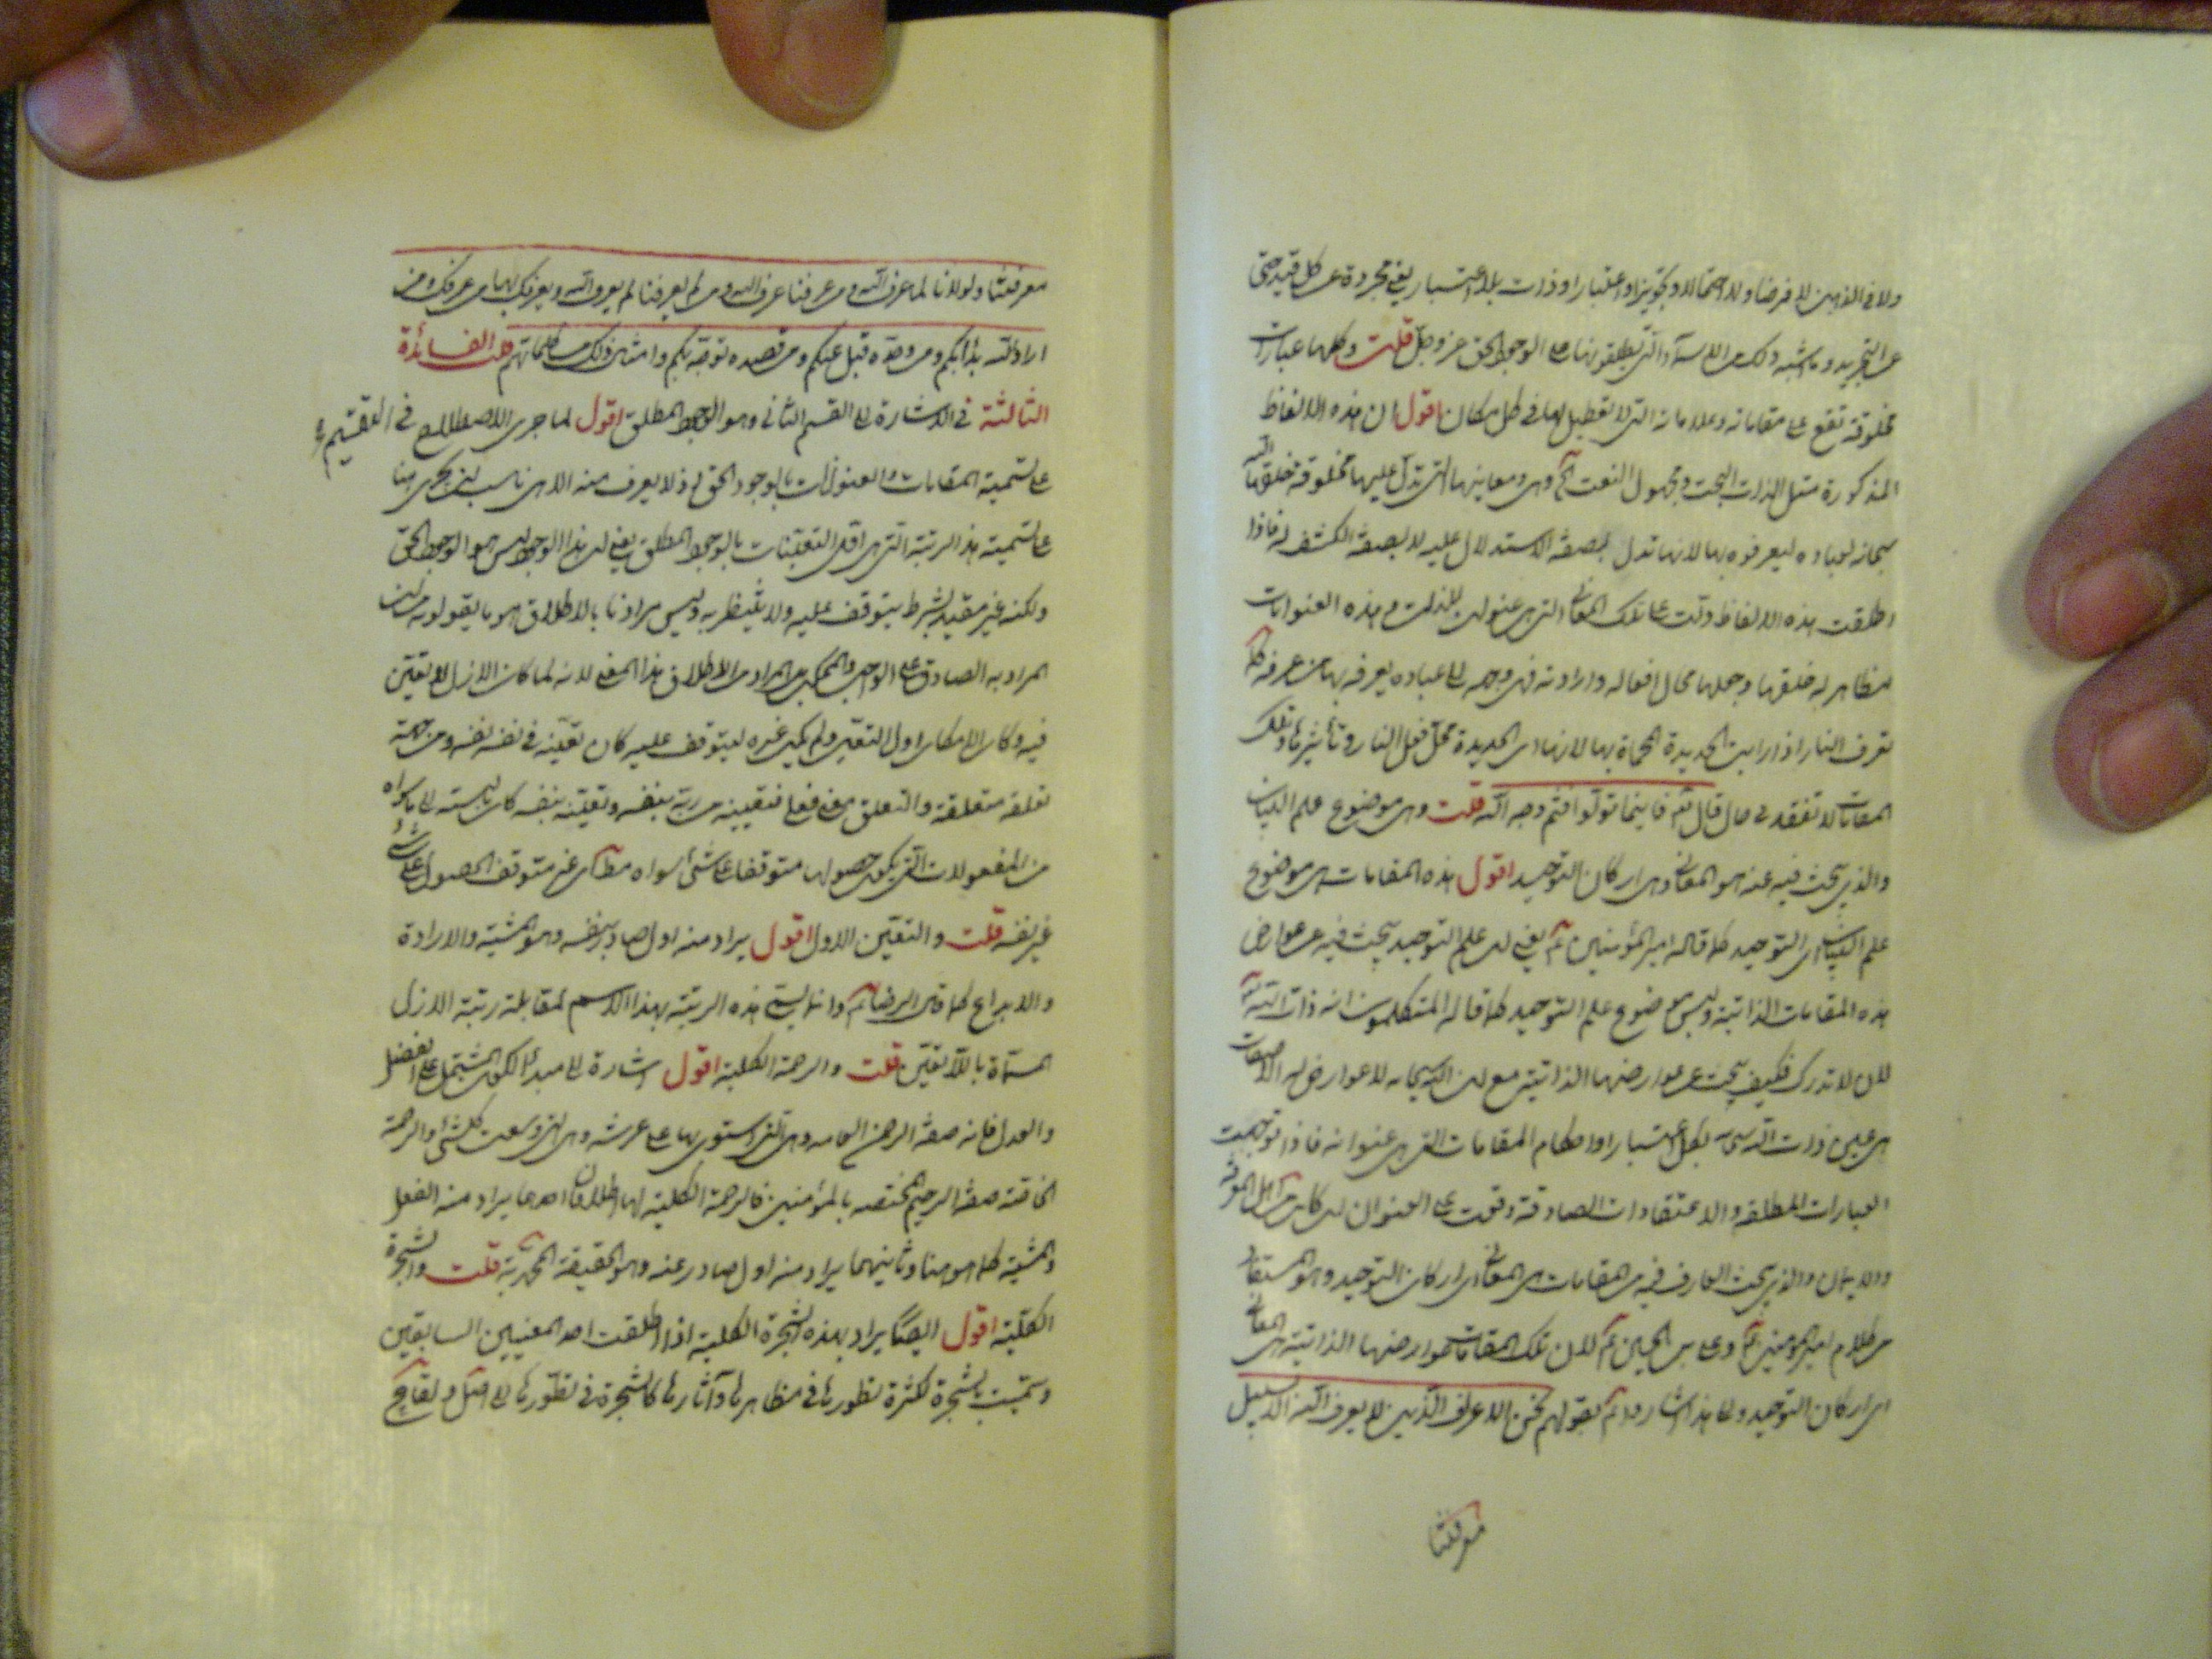 ولا في الذهن لا فرضا ولا احتمالا ولا تجويزا ولا اعتبارا وذات بلا اعتبار يعني مجردة عن كل قيد حتى
عن التجريد وما اشبه ذلك من الاسماء التي يطلقونها على الوجود الحق عز وجل قلت وكلها عبارات
مخلوقة تقع على مقاماته وعلاماته التي لا تعطيل لها في كل مكان اقول ان هذه الالفاظ
المذكورة مثل الذات البحت ومجهول النعت الخ وهي ومعانيها التي تدل عليها مخلوقة خلقها الله
سبحانه لعباده ليعرفوه بها لانها تدل بصفة الاستدلال عليه لا بصفة الكشف له فاذا
اطلقت هذه الالفاظ دلت على تلك المعاني التي هي عنوان للذات وهذه العنوانات
مظاهر له خلقها وجعلها محال افعاله وارادته فهي وجهه الى عباده يعرفه بها من عرفه كما
تعرف النار اذا رايت الحديدة المحماة بها لانها اي الحديدة محل فعل النار وتأثيرها وتلك
المقامات لا تفقد في حال قال تع فاينما تولوا فثم وجه الله قلت وهي موضوع علم البيان
والذي يبحث فيه عنه هو المعاني وهي اركان التوحيد اقول هذه المقامات هي موضوع
علم البيان اي التوحيد كما قاله امير المؤمنين ع يعني ان علم التوحيد يبحث فيه عن عوارض
هذه المقامات الذاتية وليس موضوع علم التوحيد كما قاله المتكلمون انه ذات الله تع
لان لا تدرك فكيف يبحث عن عوارضها الذاتية مع ان الله سبحانه لا عوارض له اذ الصفات
هي عين ذات الله سبحانه بكل اعتبار واحكام المقامات التي هي عنوانه فاذا توجهت
العبارات المطلقة والاعتقادات الصادقة وقعت على العنوان ان كان من اهل المعرفة
والايمان والذي يبحث العارف فيه من المقامات هي المعاني اي اركان التوحيد وهو المستفاد
من كلام امير المؤمنين ع وعلي بن الحسين ع لان تلك المقامات عوارضها الذاتية هي المعاني
اي اركان التوحيد والى هذا اشاروا ع بقولهم نحن الاعراف الذين لا يعرف الله الا بسبيل
معرفتنا
معرفتنا ولولانا لما عرف الله ومن عرفنا عرف الله ومن لم يعرفنا لم يعرف الله ويعرفك بها من عرفك من
اراد الله بدأ بكم ومن وحده قبل عنكم ومن قصده توجه بكم وامثال ذلك من كلماتهم قلت الفائدة
الثالثة في الاشارة الى القسم الثاني وهو الوجود المطلق اقول لما جرى الاصطلاح في التقسيم
على تسمية المقامات والعنوانات بالوجود الحق اذ لا يعرف منه الا هي ناسب ان يجري هنا
على تسمية هذه الرتبة التي هي اول التعينات بالوجود المطلق يعني ان هذا الوجود ليس هو الوجود الحق
ولكنه غير مقيد بشرط يتوقف عليه ولا ينتظر به وليس مرادنا بالاطلاق هو ما يقولونه من ان
المراد به الصادق على الواجب والممكن بل المراد من الاطلاق هذا المعنى لانه لما كان الازل لا تعين
فيه وكان الامكان اول التعين ولم يكن غيره ليتوقف عليه كان تعينه في نفسه بنفسه ومن جهة
تعلقه متعلقة والتعلق معنى فعلي فتعيينه من ربه بنفسه وتعينه بنفسه كان بالنسبة الى ما سواه
من المفعولات التي يكون حصولها متوقفا على شيء سواه مطلقا اي غير متوقف الحصول على شيء
غير نفسه قلت والتعين الاول اقول يراد منه اول صادر بنفسه وهو المشية والارادة
والابداع كما قال الرضا ع وانما سمي هذه الرتبة بهذا الاسم لمقابلة رتبة الازل
المسماة باللاتعين قلت والرحمة الكلية اقول اشارة الى مبدأ الكون المشتمل على الفضل
والعدل فانه صفة الرحمن العامة وهي التي استوى بها على عرشه وهي التي وسعت كل شيء والرحمة
الخاصة صفة الرحيم المختصة بالمؤمنين فالرحمة الكلية لها اطلاقان احدهما يراد منه الفعل
والمشية كما هو هنا وثانيهما يراد منه اول صادر عنه وهو الحقيقة المحمدية قلت والشجرة
الكلية اقول ايضا يراد بهذه الشجرة الكلية اذا اطلقت احد المعنيين السابقين
وسميت بالشجرة لكثرة تطورها في مظاهرها وآثارها كالشجرة في تطورها الى اصل و لقاح